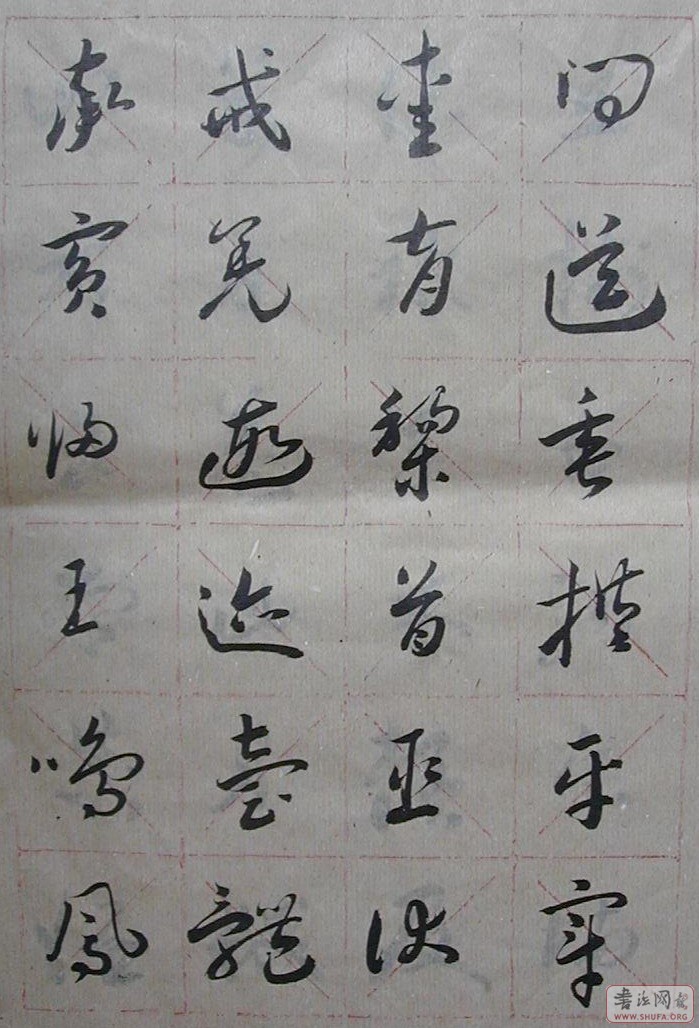 問道垂拱平章
愛育黎首臣伏
戎羌遐邇壹體
率賓歸王鳴鳳
書法网
WWW.SHUFA.ORG